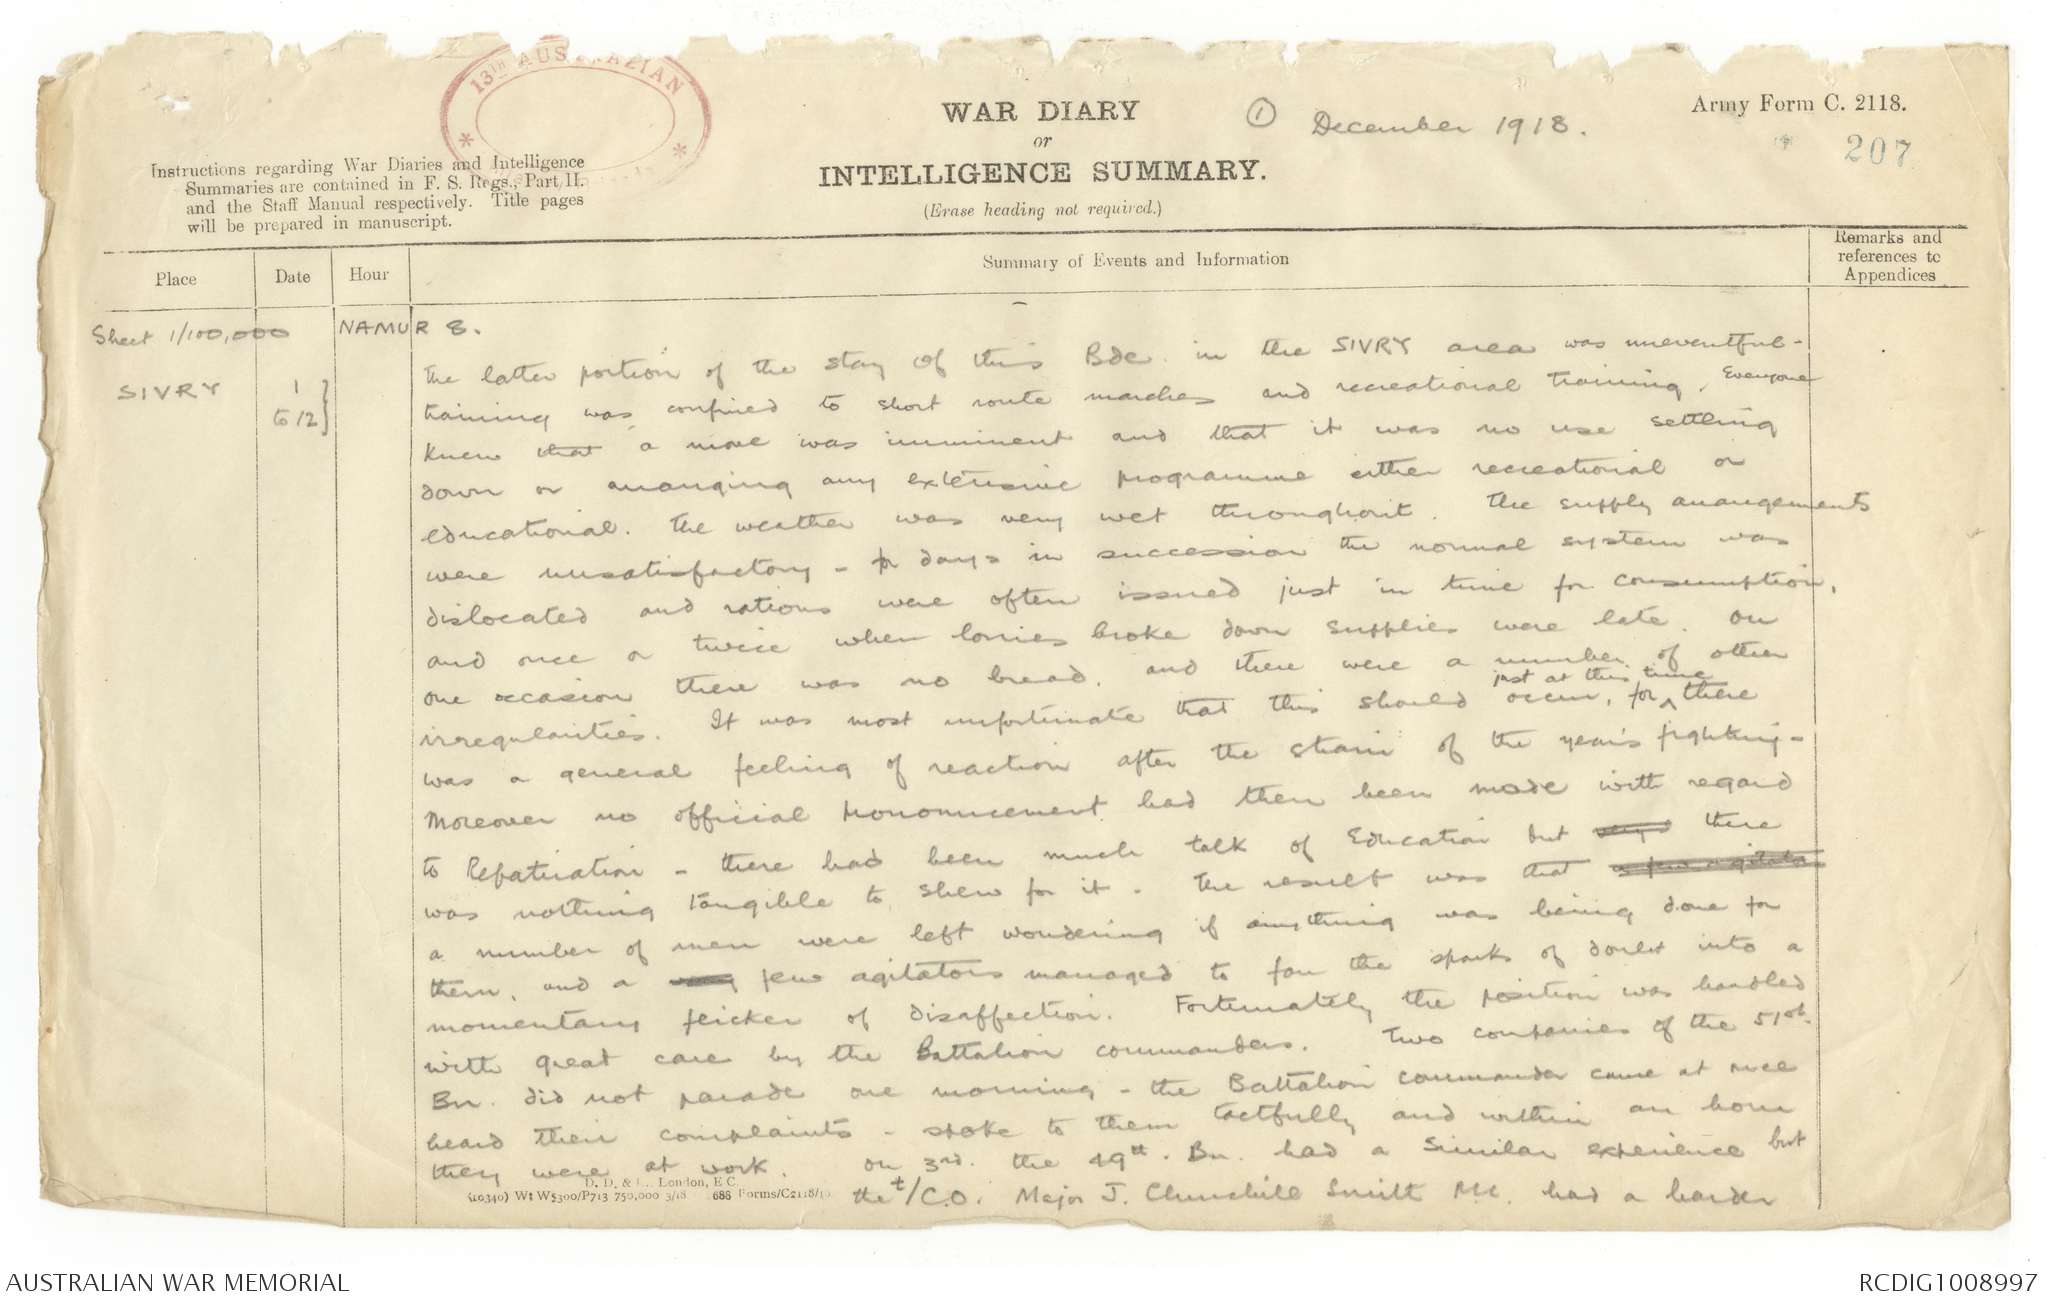 13TH AUSTRALIAN
WAR DIARY
or
INTELLIGENCE SUMMARY.
(Erase heading not required.)
① December 1918.
Army Form C. 2118.
207
Instructions regarding War Diaries and Intelligence
Summaries are contained in F. S. Regs., Part II.
and the Staff Manual respectively. Title pages
will be prepared in manuscript.
Place
Date
Hour
Summary of Events and Information
Remarks and
references to
Appendices
Sheet 1/100,000 NAMUR 8.
SIVRY
1
to 12}
The latter portion of the stay of this Bde. in the SIVRY area was uneventful -
training was confined to short route marches and recreational training. Everyone
knew that a move was imminent and that it was no use settling
down or arranging any extensive programme either recreational or
educational. The weather was very wet throughout. The supply arrangements
were unsatisfactory - for days in succession the normal system was
dislocated and rations were often issued just in time for consumption,
and once or twice when lorries broke down supplies were late. On
one occasion there was no bread, and there were a number of other
irregularities. It was most unfortunate that this should occur, for just at this time there
was a general feeling of reaction after the strain of the year's fighting -
Moreover no official pronouncement had then been made with regard
to Repatriation - there had been much talk of Education but very there
was nothing tangible to shew for it. The result was that a few agitato
a number of men were left wondering if anything was being done for
them, and a very few agitators managed to fan the sparks of doubt into a
momentary flicker of disaffection. Fortunately the position was handled
with great care by the Battalion commanders. Two companies of the 51st.
Bn. did not parade one morning - the Battalion commander came at once
heard their complaints - spoke to them tactfully and within an hour
they were at work. On 3rd. the 49th. Bn. had a similar experience but
the t/C.O. Major J. Churchill Smith MC. had a harder
D. D. & L., London, E.C.
(10340) Wt W5300/P713 750,000 3/18 688 Forms/C2118/16
AUSTRALIAN WAR MEMORIAL
RCDIG1008997